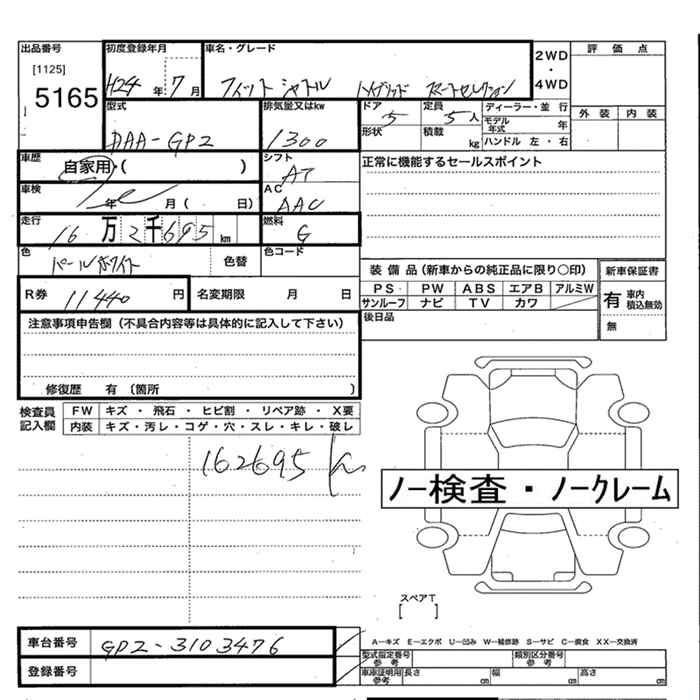 出品番号 初度登録年月 車名・グレード 2WD・4WD 評価点
[1125]
5165 H24年 7月 フィットシャトル ハイブリッド スマートセレクション
型式 排気量又はkw ドア 5 定員 5人 ディーラー・並 行 外装 内装
DAA-GP2 1300 形状 積載 kg モデル年式 年
ハンドル 左・右
車歴 自家用・( ) シフト AT 正常に機能するセールスポイント
車検 年 月( 日) AC AAC
走行 16万2千695km 燃料 G
色 パールホワイト 色替 色コード
装備品(新車からの純正品に限り〇印) 新車保証書
R券 11440円 名変期限 月 日 PS PW ABS エアB アルミW 有 車内積込無効
サンルーフ ナビ TV カワ
注意事項申告欄(不具合内容等は具体的に記入して下さい) 後日品 無
修復歴 有(箇所 )
検査員記入欄 FW キズ・飛石・ヒビ割・リペア跡・X要
内装 キズ・汚レ・コゲ・穴・スレ・キレ・破レ
162695km
ノー検査・ノークレーム
スペアT
[ ]
車台番号 GP2-3103476 A-キズ E-エクボ U-凹み W-補修跡 S-サビ C-腐食 XX-交換済
登録番号 型式指定番号 参考 類別区分番号 参考
車庫証明用 参考 長さ cm 幅 cm 高さ cm